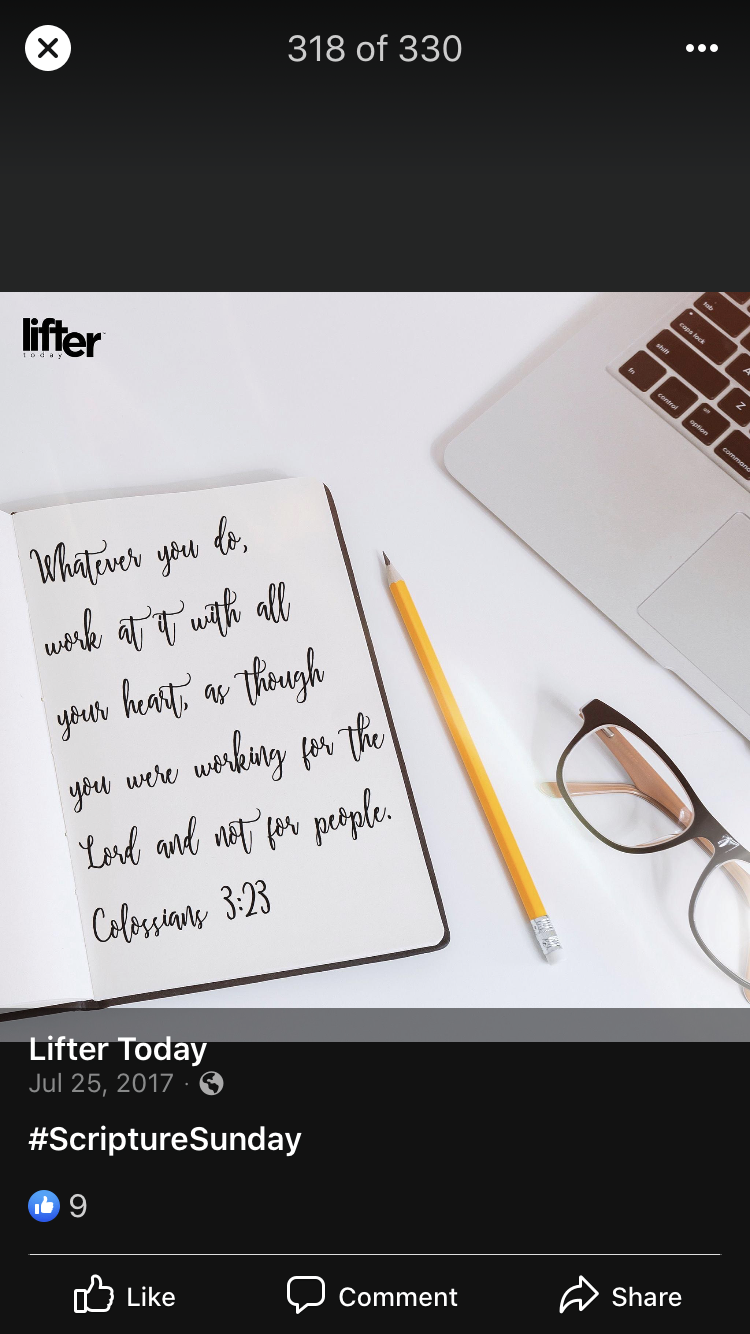 318 of 330
lifter
today
tab
caps lock
A
shift
Z
fn
control
alt
option
command
Whatever you do,
work at it with all
your heart, as though
you were working for the
Lord and not for people.
Colossians 3:23
Lifter Today
Jul 25, 2017 ·
#ScriptureSunday
9
Like
Comment
Share